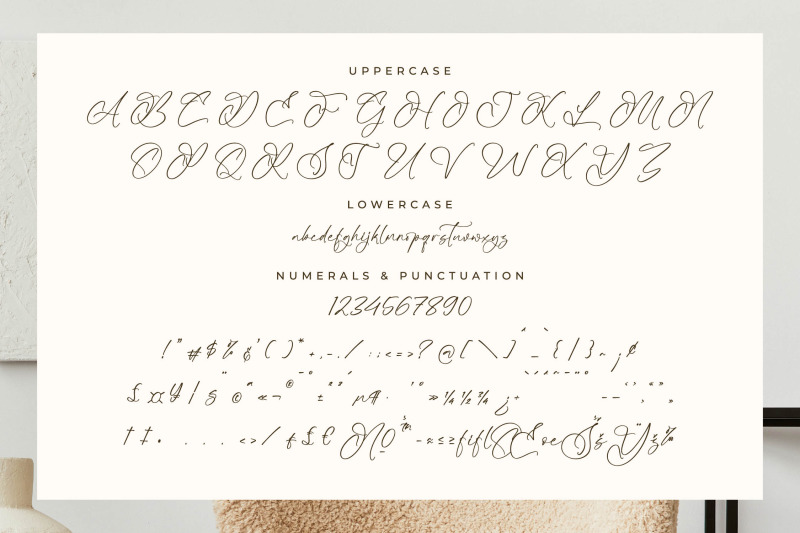 UPPERCASE
A B C D E F G H I J K L M N
O P Q R S T U V W X Y Z
LOWERCASE
abcdefghijklmnopqrstuvwxyz
NUMERALS & PUNCTUATION
1234567890
! " # $ % & ' ( ) * + , - . / : ; < = > ? @ [ \ ] ^ _ ` { | } ~ ¡ ¢
£ ¤ ¥ | § ¨ © ª « ¬ ® ¯ ° ± ² ³ ´ µ ¶ · ¸ ¹ º » ¼ ½ ¾ ¿ ÷
† ‡ • . . . < > /